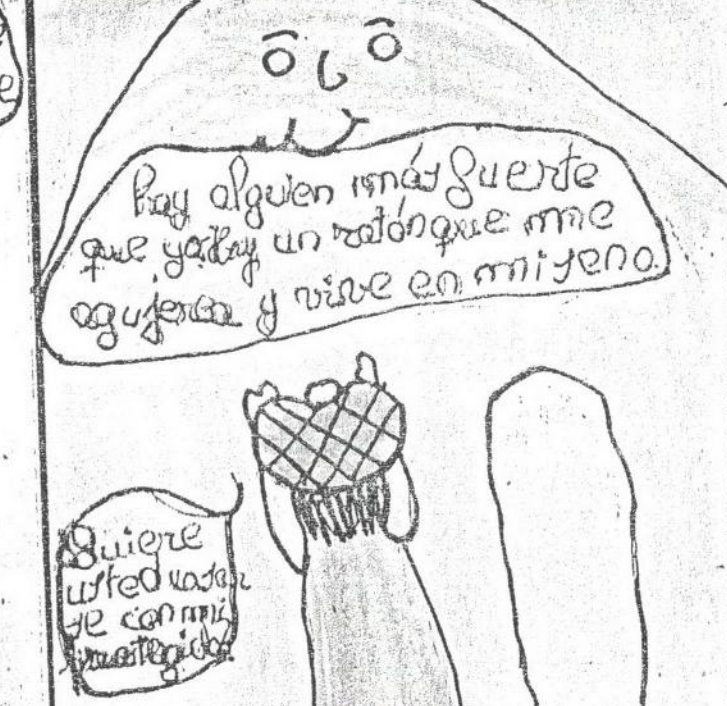 hay alguien más fuerte
que yo. Hay un ratón que me
agujerea y vive en mi seno.
Quiere
usted casar
se con mi
protegida.